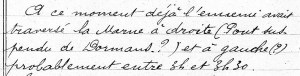 A ce moment déjà l'ennemi avait
traversé la Marne à droite (Pont sus
pendu de Dormans.?) et à gauche (?)
probablement entre 3h et 3h30.